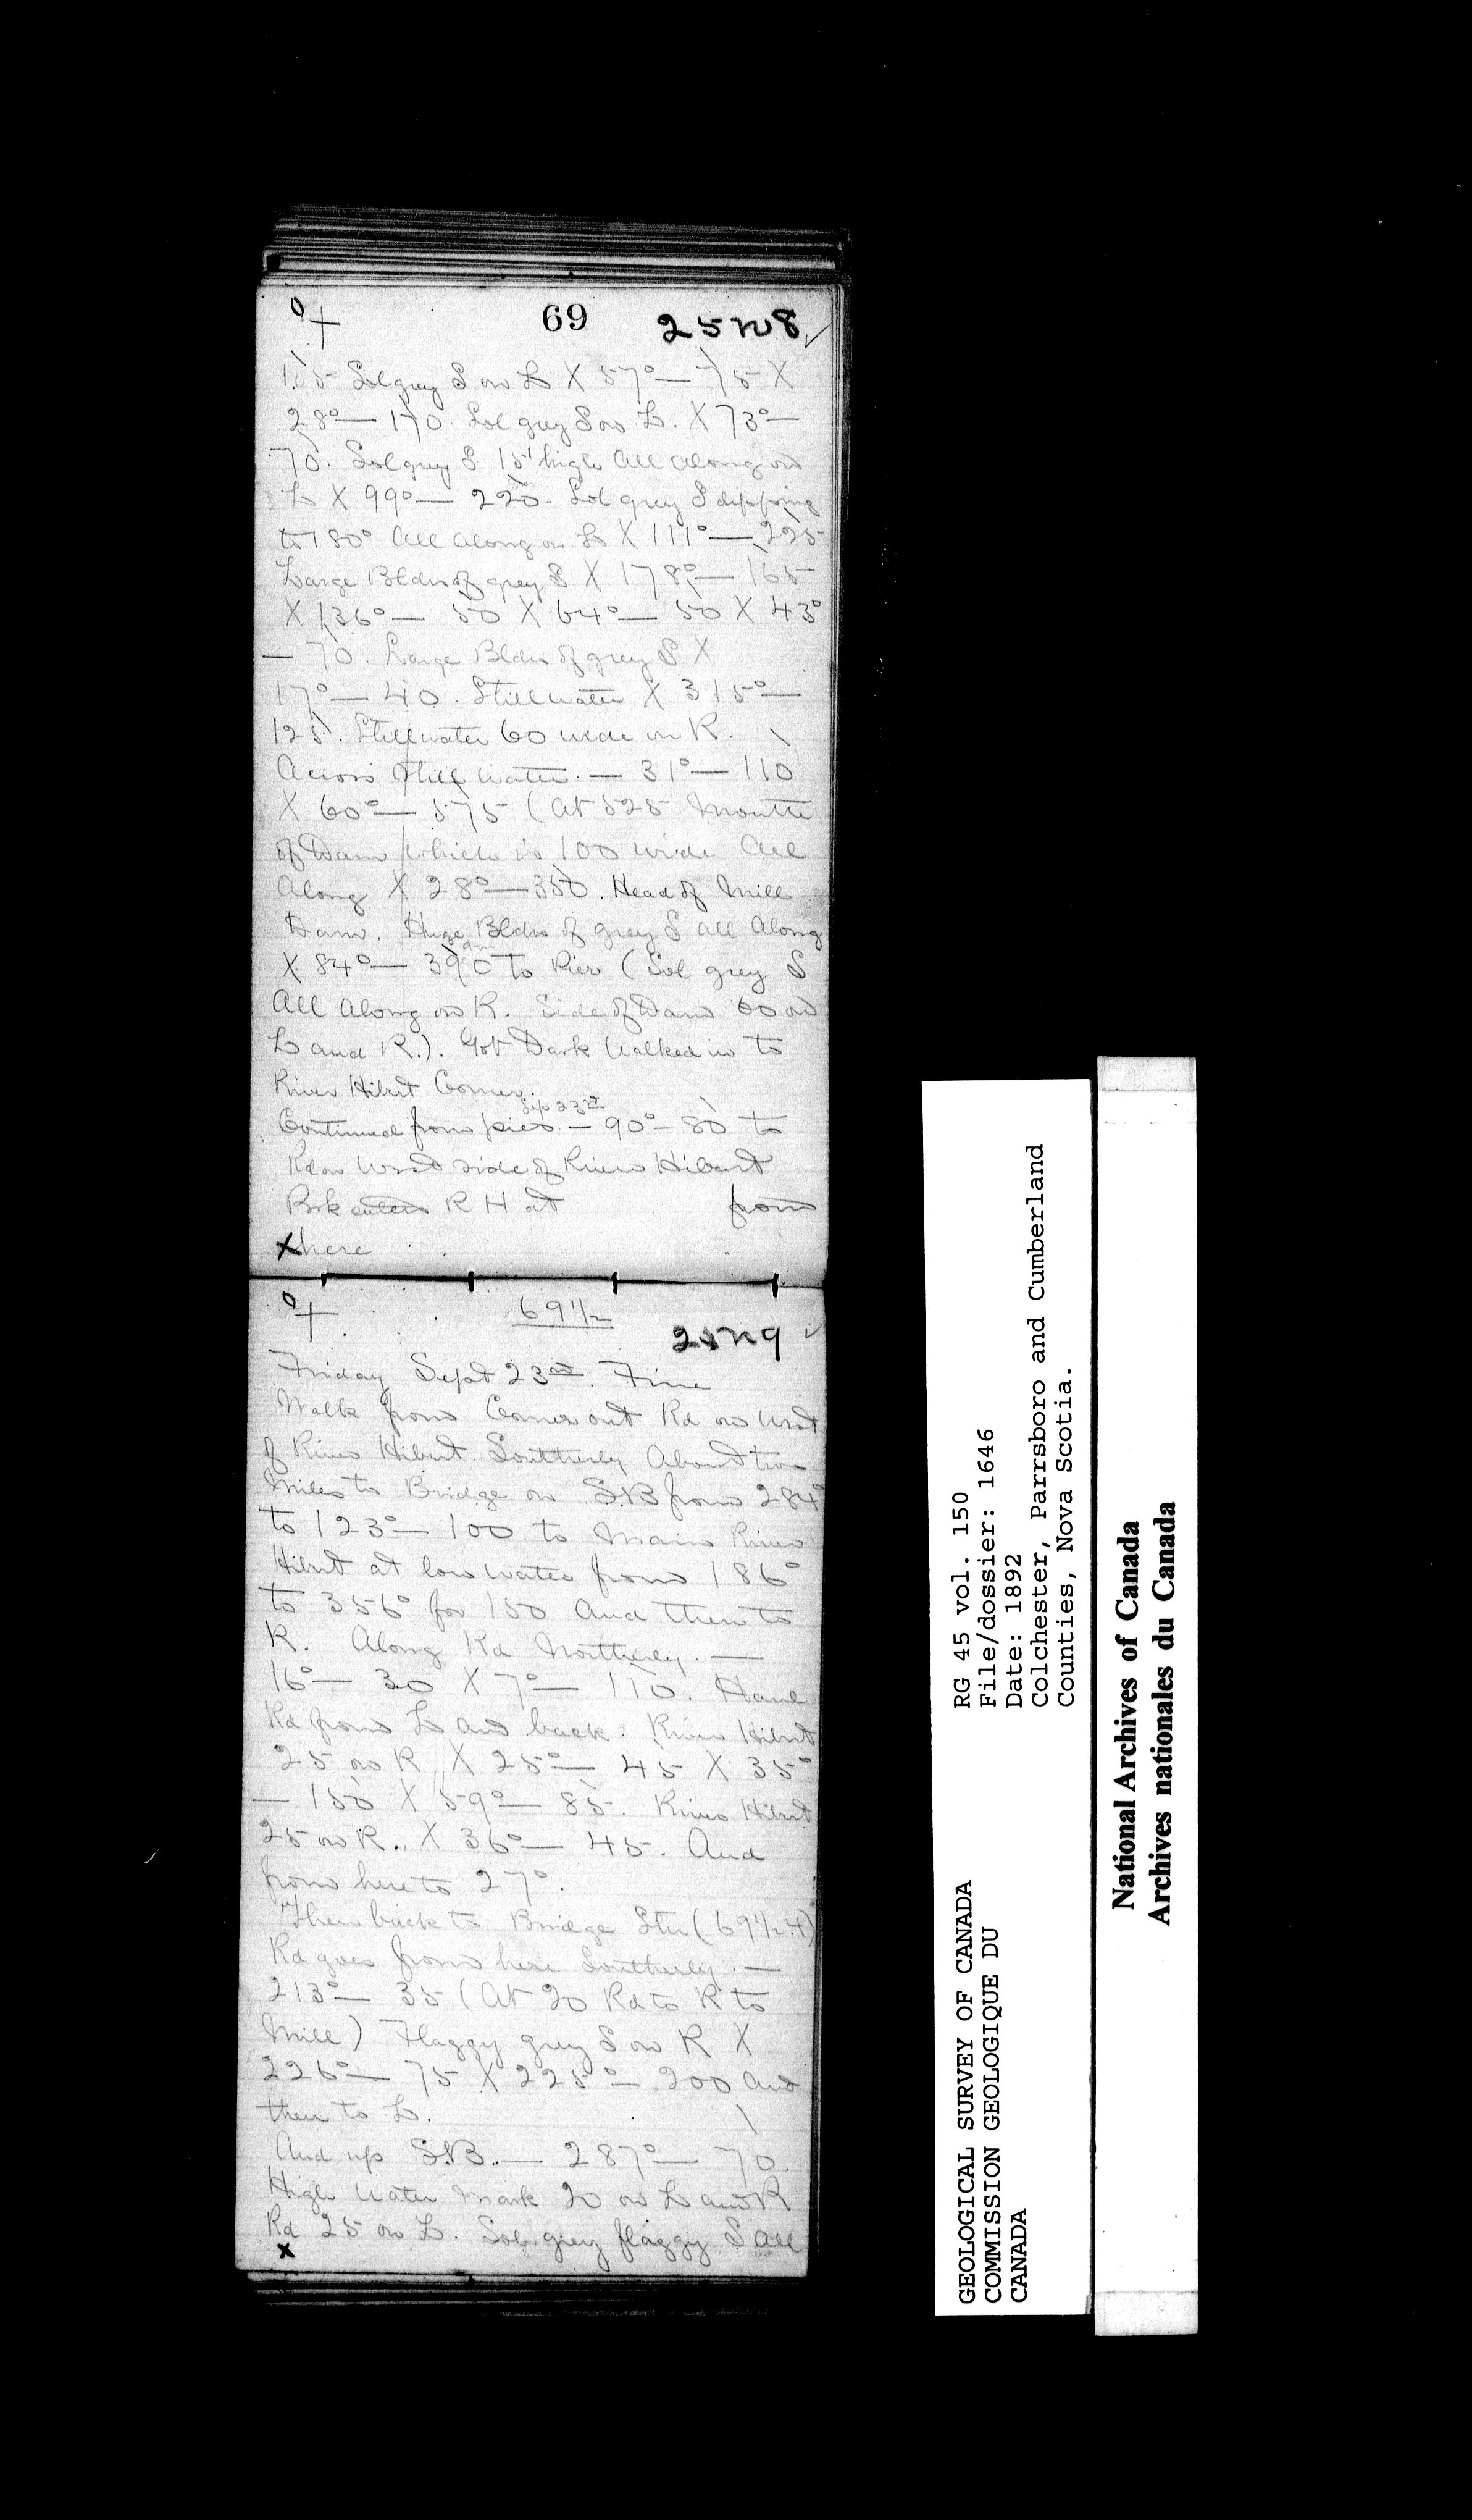 69 25N8
105 Sol grey S on L X 57° — 75 X
28° — 170. Sol grey S on L. X 73° —
70. Sol grey S 15' high all along on
L X 99° — 220. Sol grey S dipping
to 180° all along on L X 111° — 225
Large Bldrs of grey S X 178° — 165
X 136° — 50 X 64° — 50 X 43°
— 70. Large Bldrs of grey S X
17° — 40. Stillwater X 315° —
125. Stillwater 60 wide on R.
Across Still water. — 31° — 110
X 60° — 575 (At 525 Mouth
of Dam which is 100 wide all
along X 28° — 350. Head of Mill
Dam. Huge Bldrs of grey S all along
X 84° — 390 to Pier (Sol grey S
all along on R. Side of Dam 60 on
L and R.). Got Dark Walked in to
River Hibert Corner.
Sep 23rd
Continued from pier. — 90° — 80 to
Rd on West side of River Hibert
Brk enters R H at from
here
69 1/2
25N9
Friday Sept 23rd. Fine
Walk from Corner out Rd on West
of River Hibert Southerly About two
miles to Bridge on S.B from 284°
to 123° — 100 to Main River
Hibert at low water from 186°
to 356° for 150 and then to
R. Along Rd Northerly. —
16° — 30 X 7° — 110. Haul
Rd from L and back. River Hibert
25 on R X 25° — 45 X 35°
— 150 X 59° — 85. River Hibert
25 on R. X 36° — 45. And
from here to 27°.
Then back to Bridge Stn (69 1/2.4)
Rd goes from here Southerly. —
213° — 35 (At 20 Rd to R to
Mill) Flaggy grey S on R X
226° — 75 X 225° — 200 and
then to L.
And up S.B. — 287° — 70.
High Water mark 20 on L and R
Rd 25 on L. Sol grey flaggy S all
X
GEOLOGICAL SURVEY OF CANADA
COMMISSION GEOLOGIQUE DU
CANADA
RG 45 vol. 150
File/dossier: 1646
Date: 1892
Colchester, Parrrsboro and Cumberland
Counties, Nova Scotia.
National Archives of Canada
Archives nationales du Canada